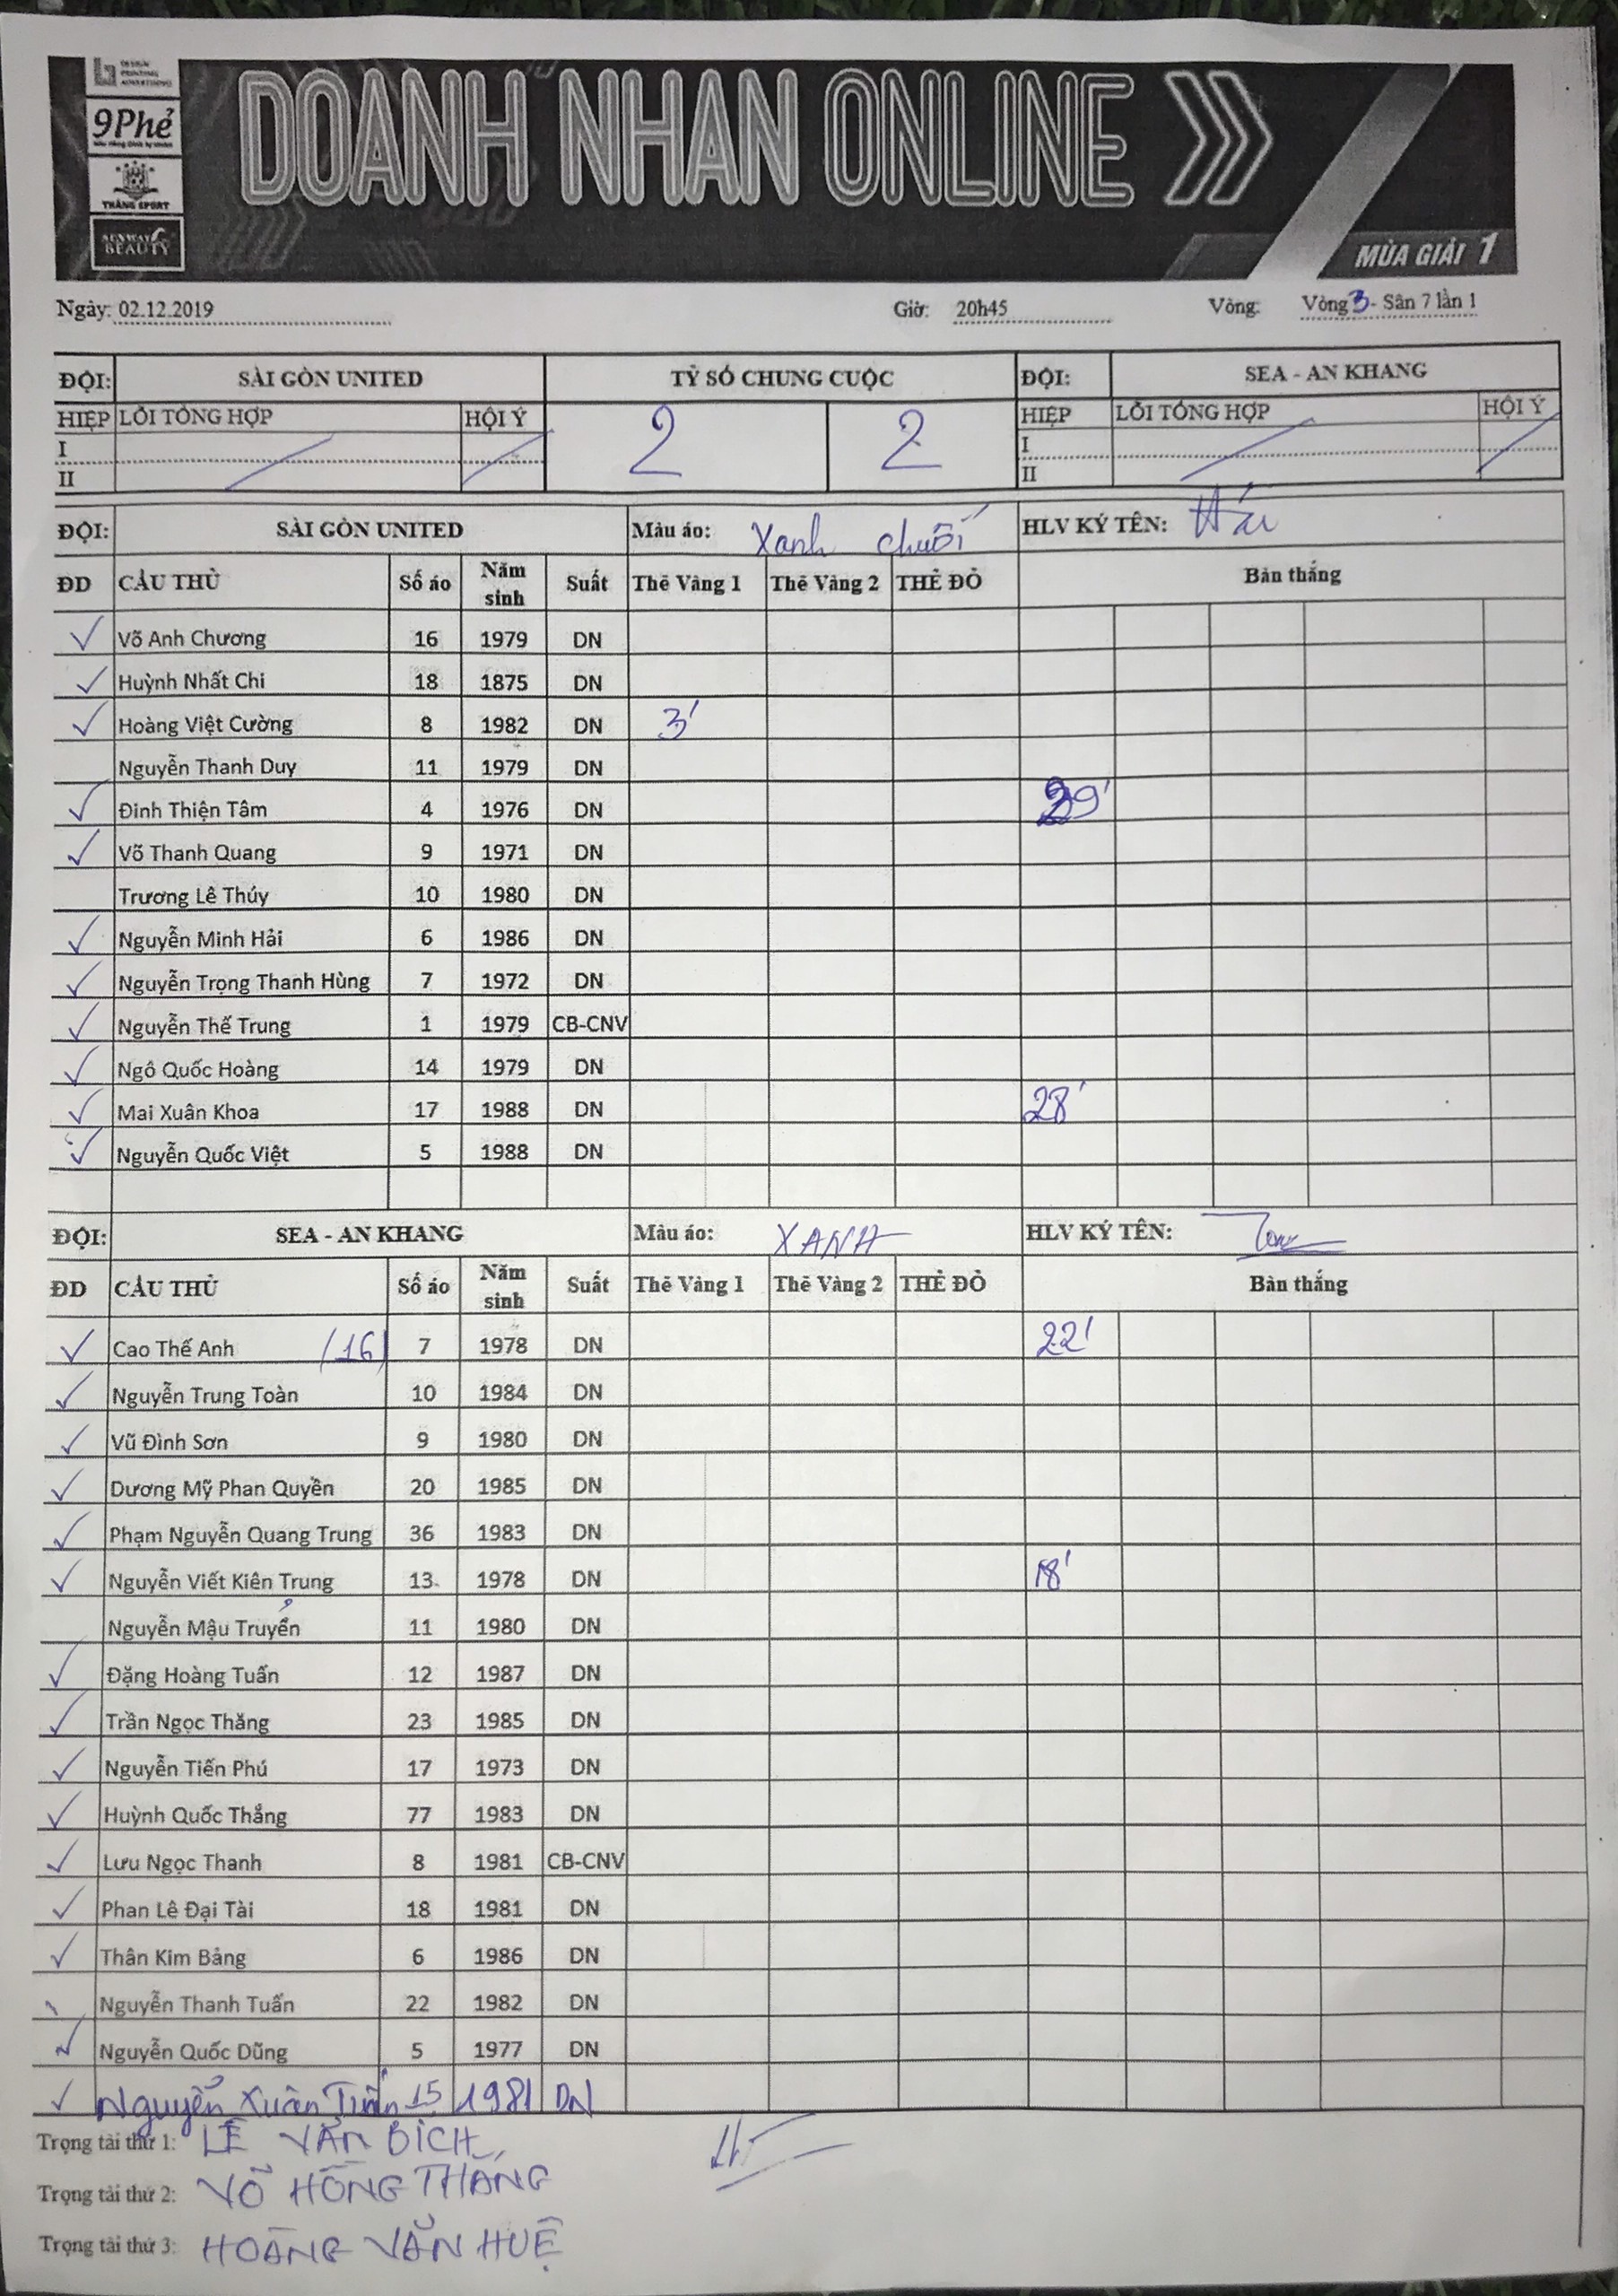 DESIGN
PRINTING
ADVERTISING
9Phẻ
THĂNG SPORT
SUNWAY
BEAUTY
DOANH NHAN ONLINE
MÙA GIẢI 1
Ngày: 02.12.2019 Giờ: 20h45 Vòng: Vòng 3 - Sân 7 lần 1
ĐỘI: SÀI GÒN UNITED TỶ SỐ CHUNG CUỘC ĐỘI: SEA - AN KHANG
HIỆP LỖI TỔNG HỢP HỘI Ý 2 2 HIỆP LỖI TỔNG HỢP HỘI Ý
I I
II II
ĐỘI: SÀI GÒN UNITED Màu áo: Xanh chuối HLV KÝ TÊN: Hải
ĐD CẦU THỦ Số áo Năm sinh Suất Thẻ Vàng 1 Thẻ Vàng 2 THẺ ĐỎ Bàn thắng
Võ Anh Chương 16 1979 DN
Huỳnh Nhất Chi 18 1875 DN
Hoàng Việt Cường 8 1982 DN 3'
Nguyễn Thanh Duy 11 1979 DN
Đinh Thiện Tâm 4 1976 DN 29'
Võ Thanh Quang 9 1971 DN
Trương Lê Thúy 10 1980 DN
Nguyễn Minh Hải 6 1986 DN
Nguyễn Trọng Thanh Hùng 7 1972 DN
Nguyễn Thế Trung 1 1979 CB-CNV
Ngô Quốc Hoàng 14 1979 DN
Mai Xuân Khoa 17 1988 DN 28'
Nguyễn Quốc Việt 5 1988 DN
ĐỘI: SEA - AN KHANG Màu áo: XANH HLV KÝ TÊN:
ĐD CẦU THỦ Số áo Năm sinh Suất Thẻ Vàng 1 Thẻ Vàng 2 THẺ ĐỎ Bàn thắng
Cao Thế Anh (16) 7 1978 DN 22'
Nguyễn Trung Toàn 10 1984 DN
Vũ Đình Sơn 9 1980 DN
Dương Mỹ Phan Quyền 20 1985 DN
Phạm Nguyễn Quang Trung 36 1983 DN
Nguyễn Viết Kiên Trung 13 1978 DN 18'
Nguyễn Mậu Truyển 11 1980 DN
Đặng Hoàng Tuấn 12 1987 DN
Trần Ngọc Thăng 23 1985 DN
Nguyễn Tiến Phú 17 1973 DN
Huỳnh Quốc Thắng 77 1983 DN
Lưu Ngọc Thanh 8 1981 CB-CNV
Phan Lê Đại Tài 18 1981 DN
Thân Kim Bảng 6 1986 DN
Nguyễn Thanh Tuấn 22 1982 DN
Nguyễn Quốc Dũng 5 1977 DN
Nguyễn Xuân Tuấn 15 1981 DN
Trọng tài thứ 1: LÊ VĂN BÍCH
Trọng tài thứ 2: VÕ HỒNG THẮNG
Trọng tài thứ 3: HOÀNG VĂN HUỆ